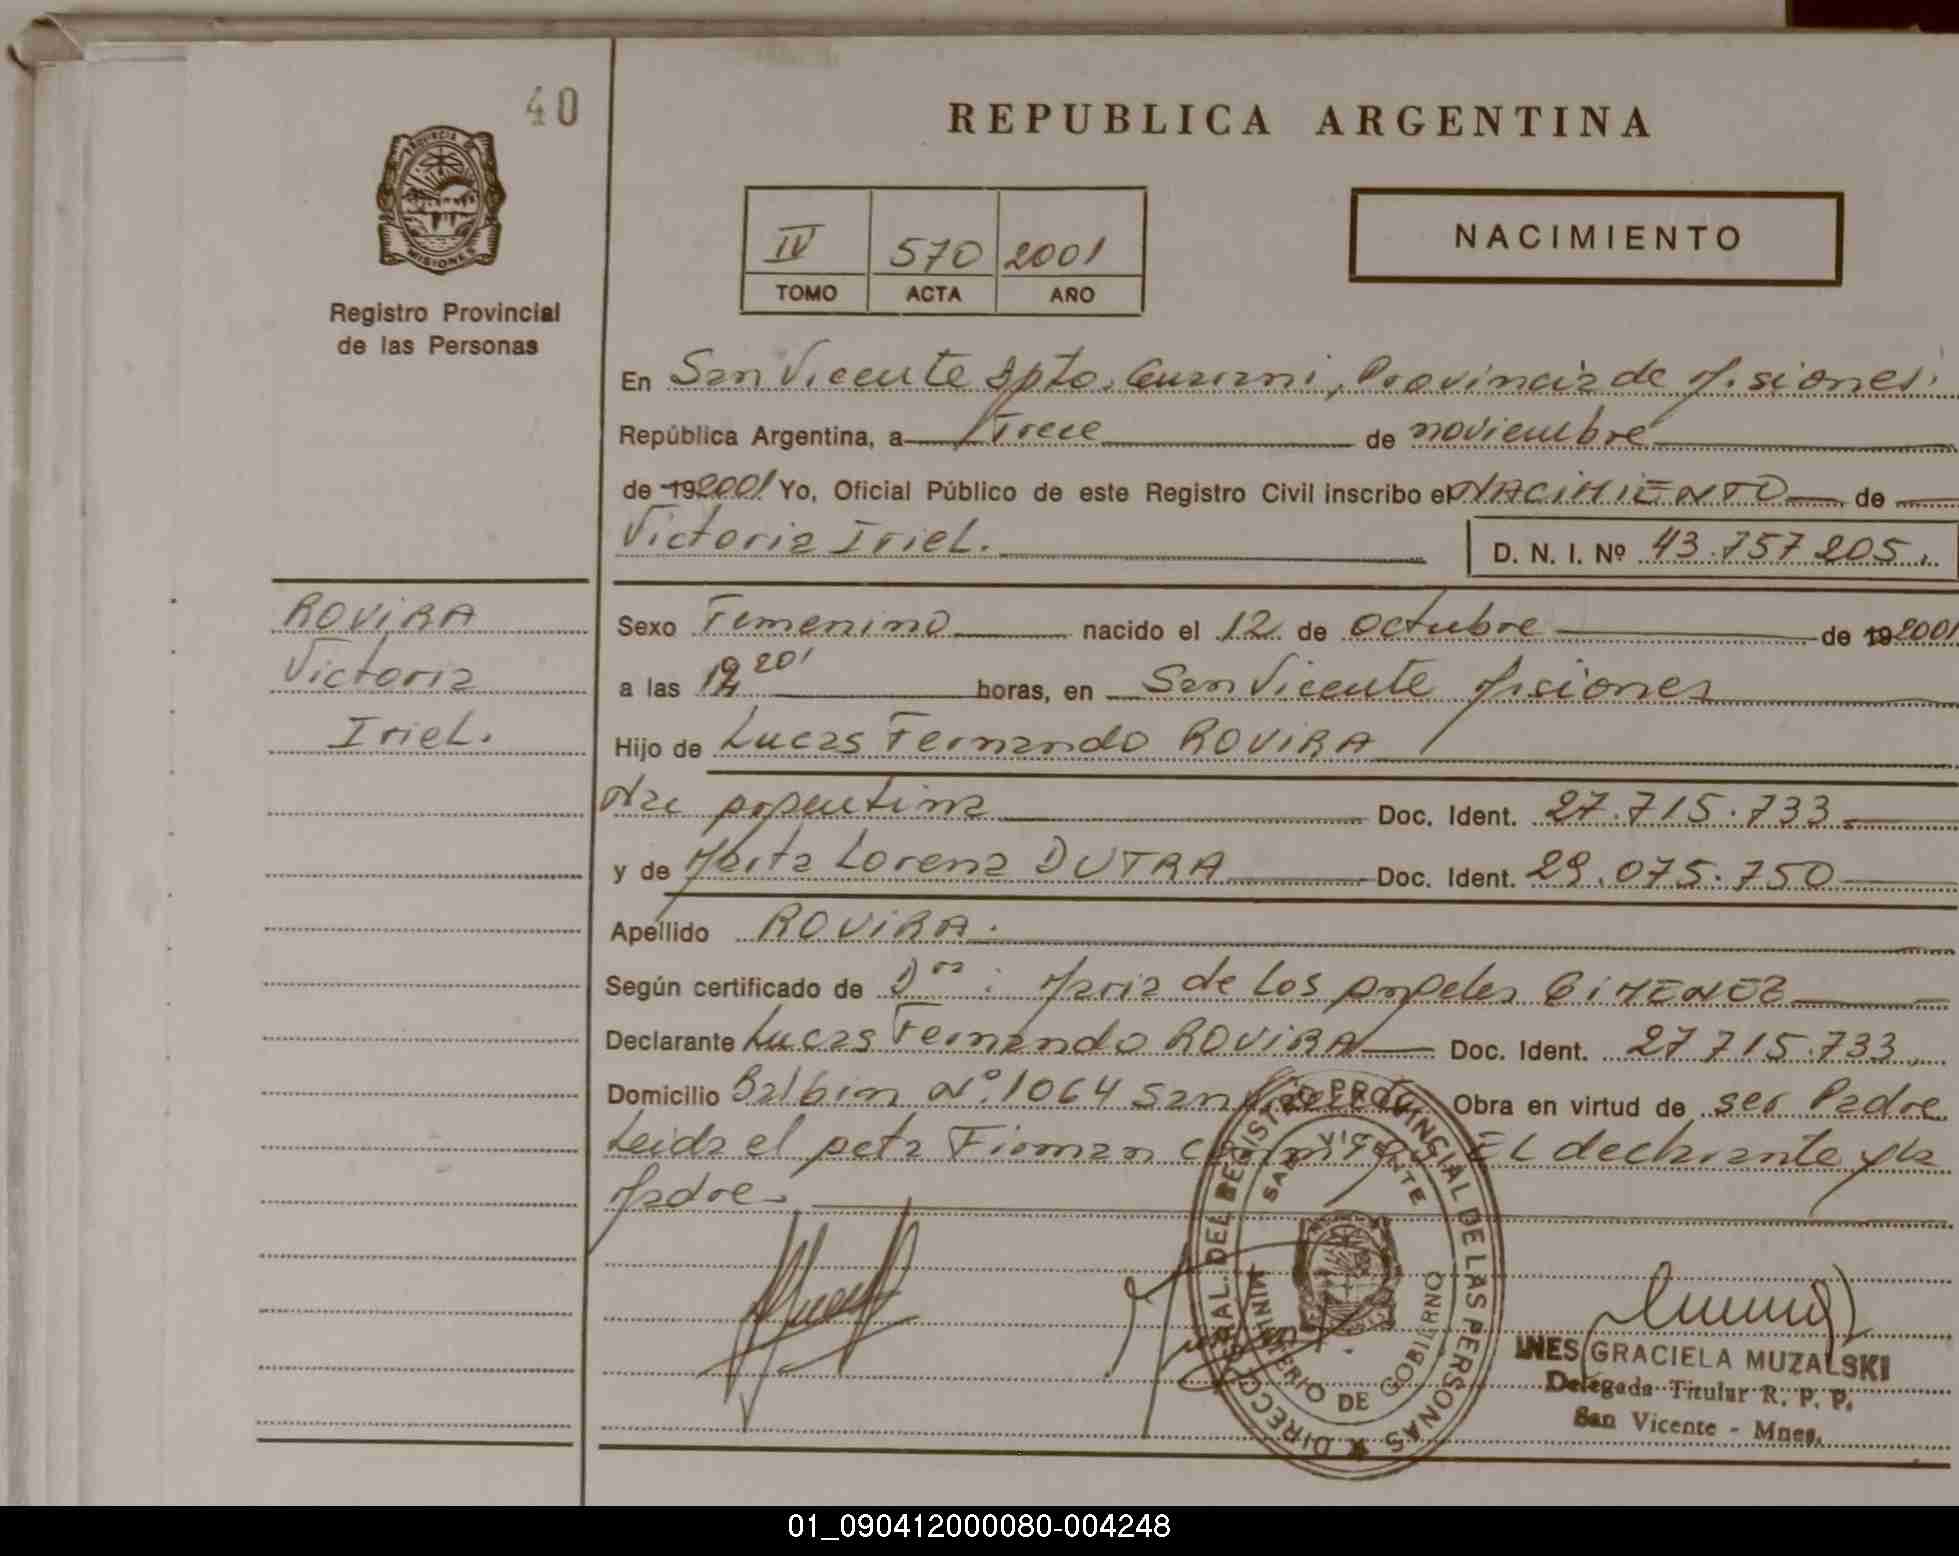 40
PROVINCIA DE
MISIONES
Registro Provincial
de las Personas
REPUBLICA ARGENTINA
IV 570 2001
TOMO ACTA AÑO
NACIMIENTO
En San Vicente Dpto. Guarani, Provincia de Misiones.
República Argentina, a Trece de noviembre
de 19 2001 Yo, Oficial Público de este Registro Civil inscribo el NACIMIENTO de
Victoria Iriel.
D. N. I. Nº 43.757.205.
ROVIRA
Victoria
Iriel.
Sexo Femenino nacido el 12 de octubre de 19 2001
a las 20' horas, en San Vicente Misiones
Hijo de Lucas Fernando ROVIRA
Nac Argentina Doc. Ident. 27.715.733
y de Marta Lorena DUTRA Doc. Ident. 29.075.750
Apellido ROVIRA.
Según certificado de Dra: Maria de Los Angeles GIMENEZ
Declarante Lucas Fernando ROVIRA Doc. Ident. 27 715.733
Domicilio Balbin Nº.1064 San Vicente Obra en virtud de ser Padre
Leida el acta Firman conmigo EL declarante y la
Madre.
DIRECC. GRAL. DEL REGISTRO PROVINCIAL DE LAS PERSONAS
SAN VICENTE
MINISTERIO DE GOBIERNO
INES GRACIELA MUZALSKI
Delegada Titular R. P. P.
San Vicente - Mnes.
01_090412000080-004248